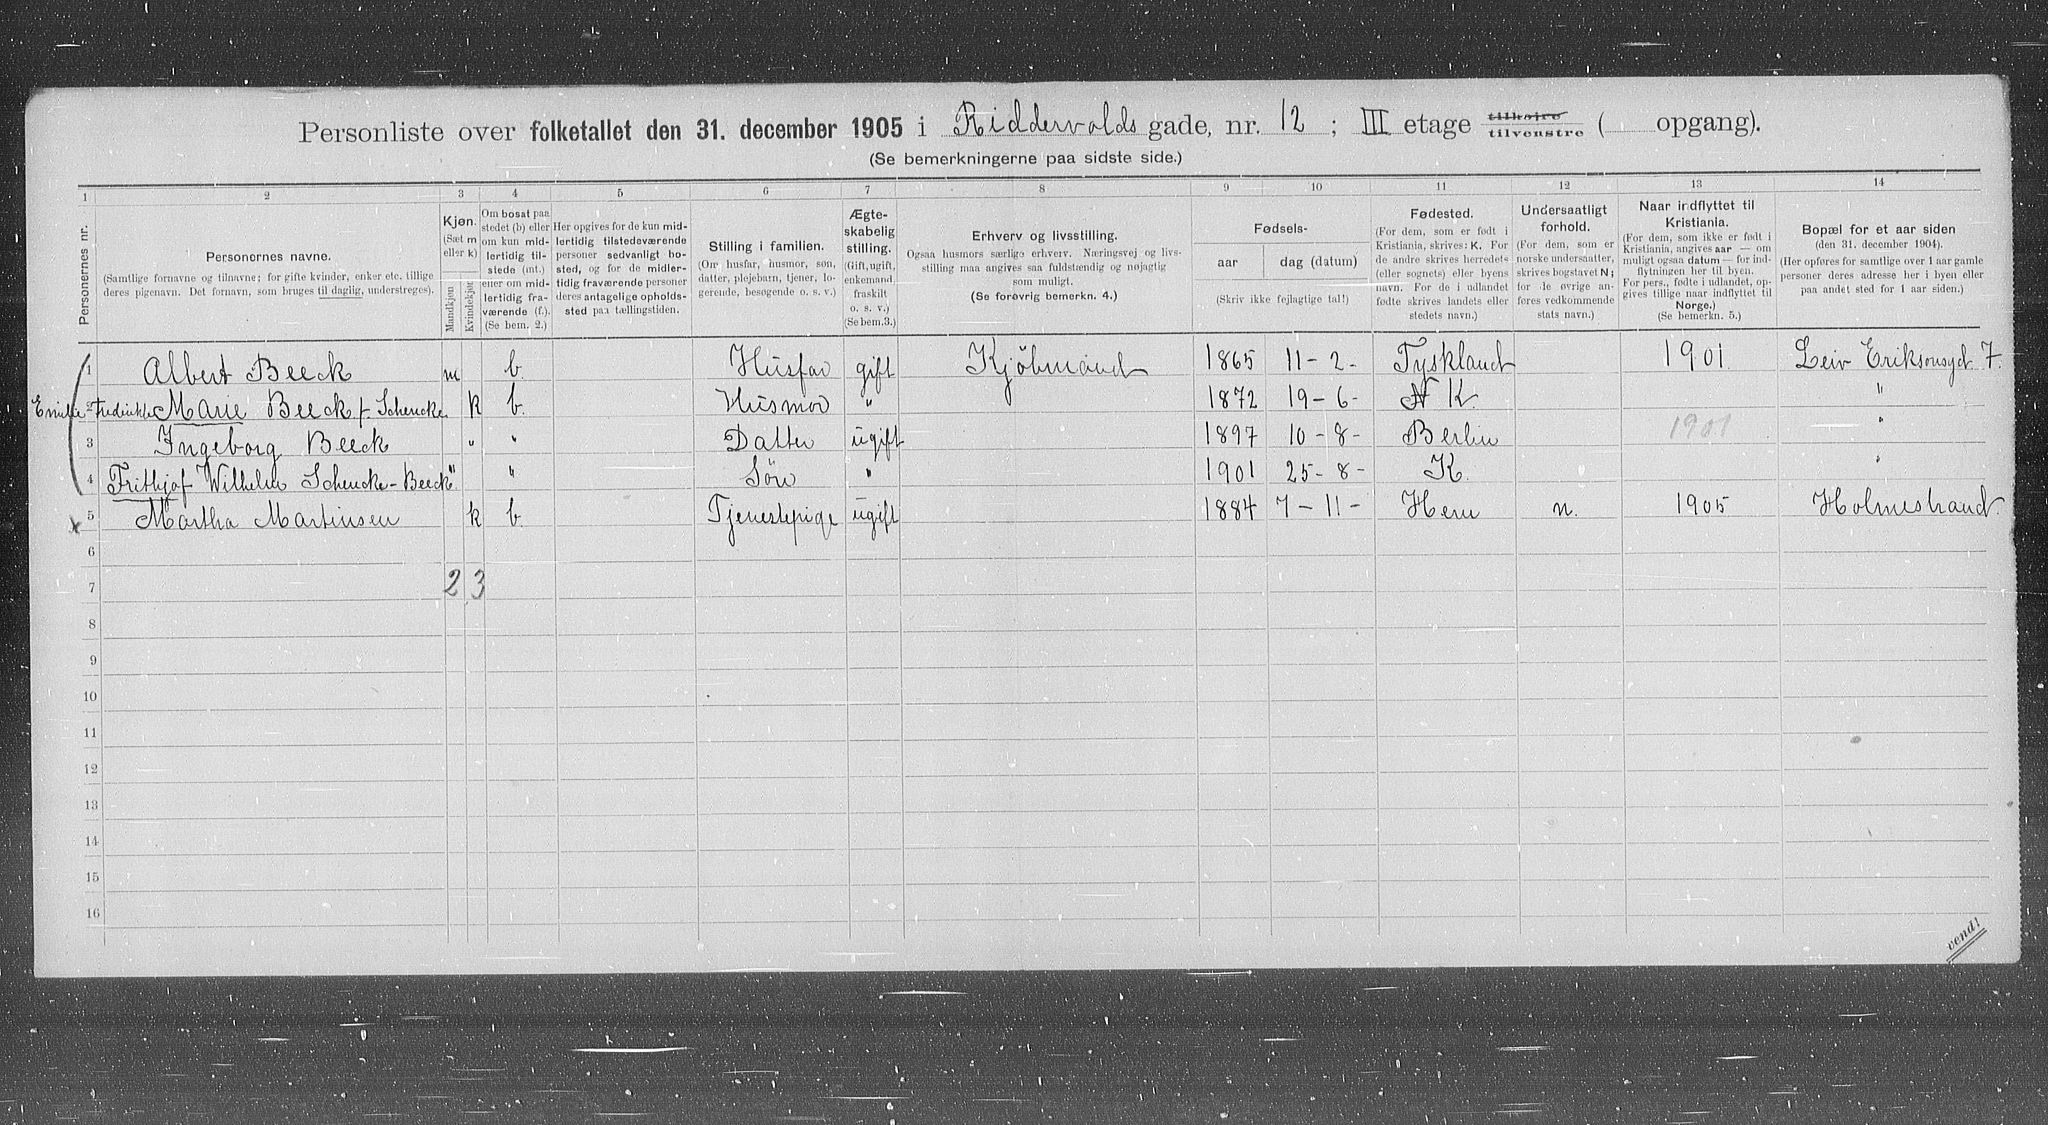 Personliste over folketallet den 31. december 1905 i Riddervolds gade, nr. 12 ; III etage tilhøire tilvenstre ( opgang).
(Se bemerkningerne paa sidste side.)
1 2 3 4 5 6 7 8 9 10 11 12 13 14
Personernes nr.
Personernes navne.
(Samtlige fornavne og tilnavne; for gifte kvinder, enker etc. tillige
deres pigenavn. Det fornavn, som bruges til daglig, understreges).
Kjøn.
(Sæt m
eller k)
Mandkjøn
Kvindekjøn
Om bosat paa
stedet (b) eller
om kun mid-
lertidig til-
stede (mt.)
eller om mid-
lertidig fra-
værende (f.).
(Se bem. 2.)
Her opgives for de kun mid-
lertidig tilstedeværende
personer sedvanligt bo-
sted, og for de midler-
tidig fraværende personer
deres antagelige opholds-
sted paa tællingstiden.
Stilling i familien.
(Om husfar, husmor, søn,
datter, plejebarn, tjener, lo-
gerende, besøgende o. s. v.)
Ægte-
skabelig
stilling.
(Gift, ugift,
enkemand,
fraskilt
o. s. v.)
(Se bem.3.)
Erhverv og livsstilling.
Ogsaa husmors særlige erhverv. Næringsvej og livs-
stilling maa angives saa fuldstændig og nøjagtig
som muligt.
(Se forøvrig bemerkn. 4.)
Fødsels-
aar dag (datum)
(Skriv ikke fejlagtige tal!)
Fødested.
(For dem, som er født i
Kristiania, skrives: K. For
de andre skrives herredets
(eller sognets) eller byens
navn. For de i udlandet
fødte skrives landets eller
stedets navn.)
Undersaatligt
forhold.
(For dem, som er
norske undersaatter,
skrives bogstavet N;
for de øvrige an-
føres vedkommende
stats navn.)
Naar indflyttet til
Kristiania.
(For dem, som ikke er født i
Kristiania, angives aar — om
muligt ogsaa datum — for ind-
flytningen her til byen.
For pers., fødte i udlandet, op-
gives tillige naar indflyttet til
Norge.)
(Se bemerkn. 5.)
Bopæl for et aar siden
(den 31. december 1904).
(Her opføres for samtlige over 1 aar gamle
personer deres adresse her i byen eller
paa andet sted for 1 aar siden.)
1 Albert Beeck m b. Husfar gift Kjöbmand 1865 11-2- Tyskland 1901 Leiv Eriksonsgd 7.
2 Emilie Fredrikke Marie Beeck f. Schencke k b. Husmor " 1872 19-6- N K. "
3 Ingeborg Beeck " " Datter ugift 1897 10-8- Berlin 1901 "
4 Frithjof Wilhelm Schencke-Beeck " " Sön " 1901 25-8- K. "
x 5 Martha Martinsen k b. Tjenestepige ugift 1884 7-11- Hem n. 1905 Holmestrand.
6
7 2 3
8
9
10
11
12
13
14
15
16
vend!